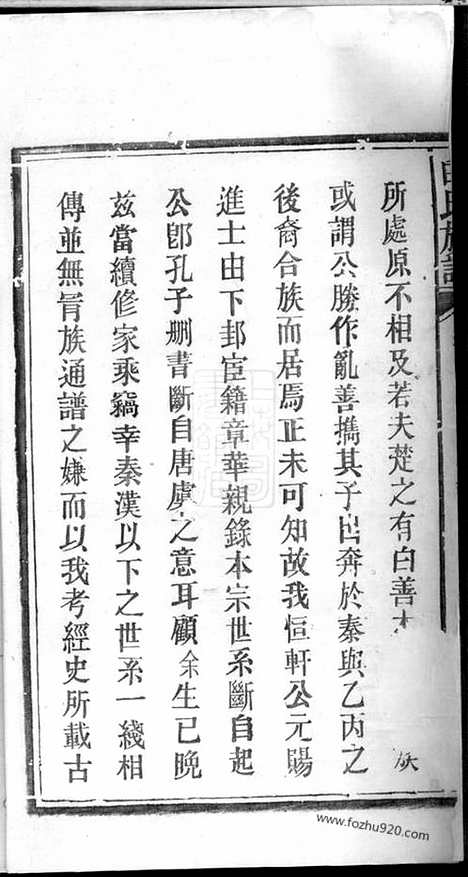 所處原不相及若夫楚之有白善
族
或謂公勝作亂善攜其子出奔於秦與乙丙之
後裔合族而居焉正未可知故我恒軒公元賜
進士由下邽宦籍章華親錄本宗世系斷自起
公卽孔子刪書斷自唐虞之意耳顧余生已晚
茲當續修家乘竊幸秦漢以下之世系一綫相
傳並無冐族通譜之嫌而以我考經史所載古
氏族譜
www.fozhu920.com